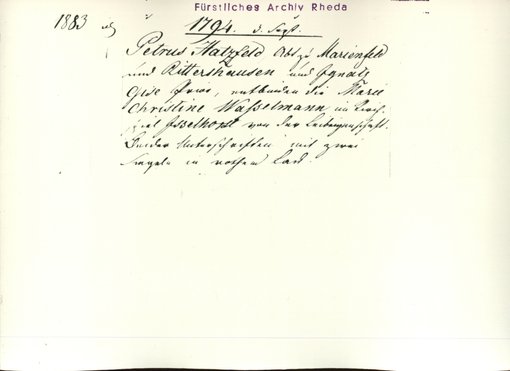 Fürstliches Archiv Rheda
1883
1794. 3. Sept.
Petrus Hatzfeld Abt zu Marienfeld
und Rittershausen und Ignatz
entbinden die Marie
Christine Wasselmann im Kirch-
spiel Isselhorst von der Leibeigenschaft.
Beider Unterschriften mit zwei
Siegeln in rothem Lack.